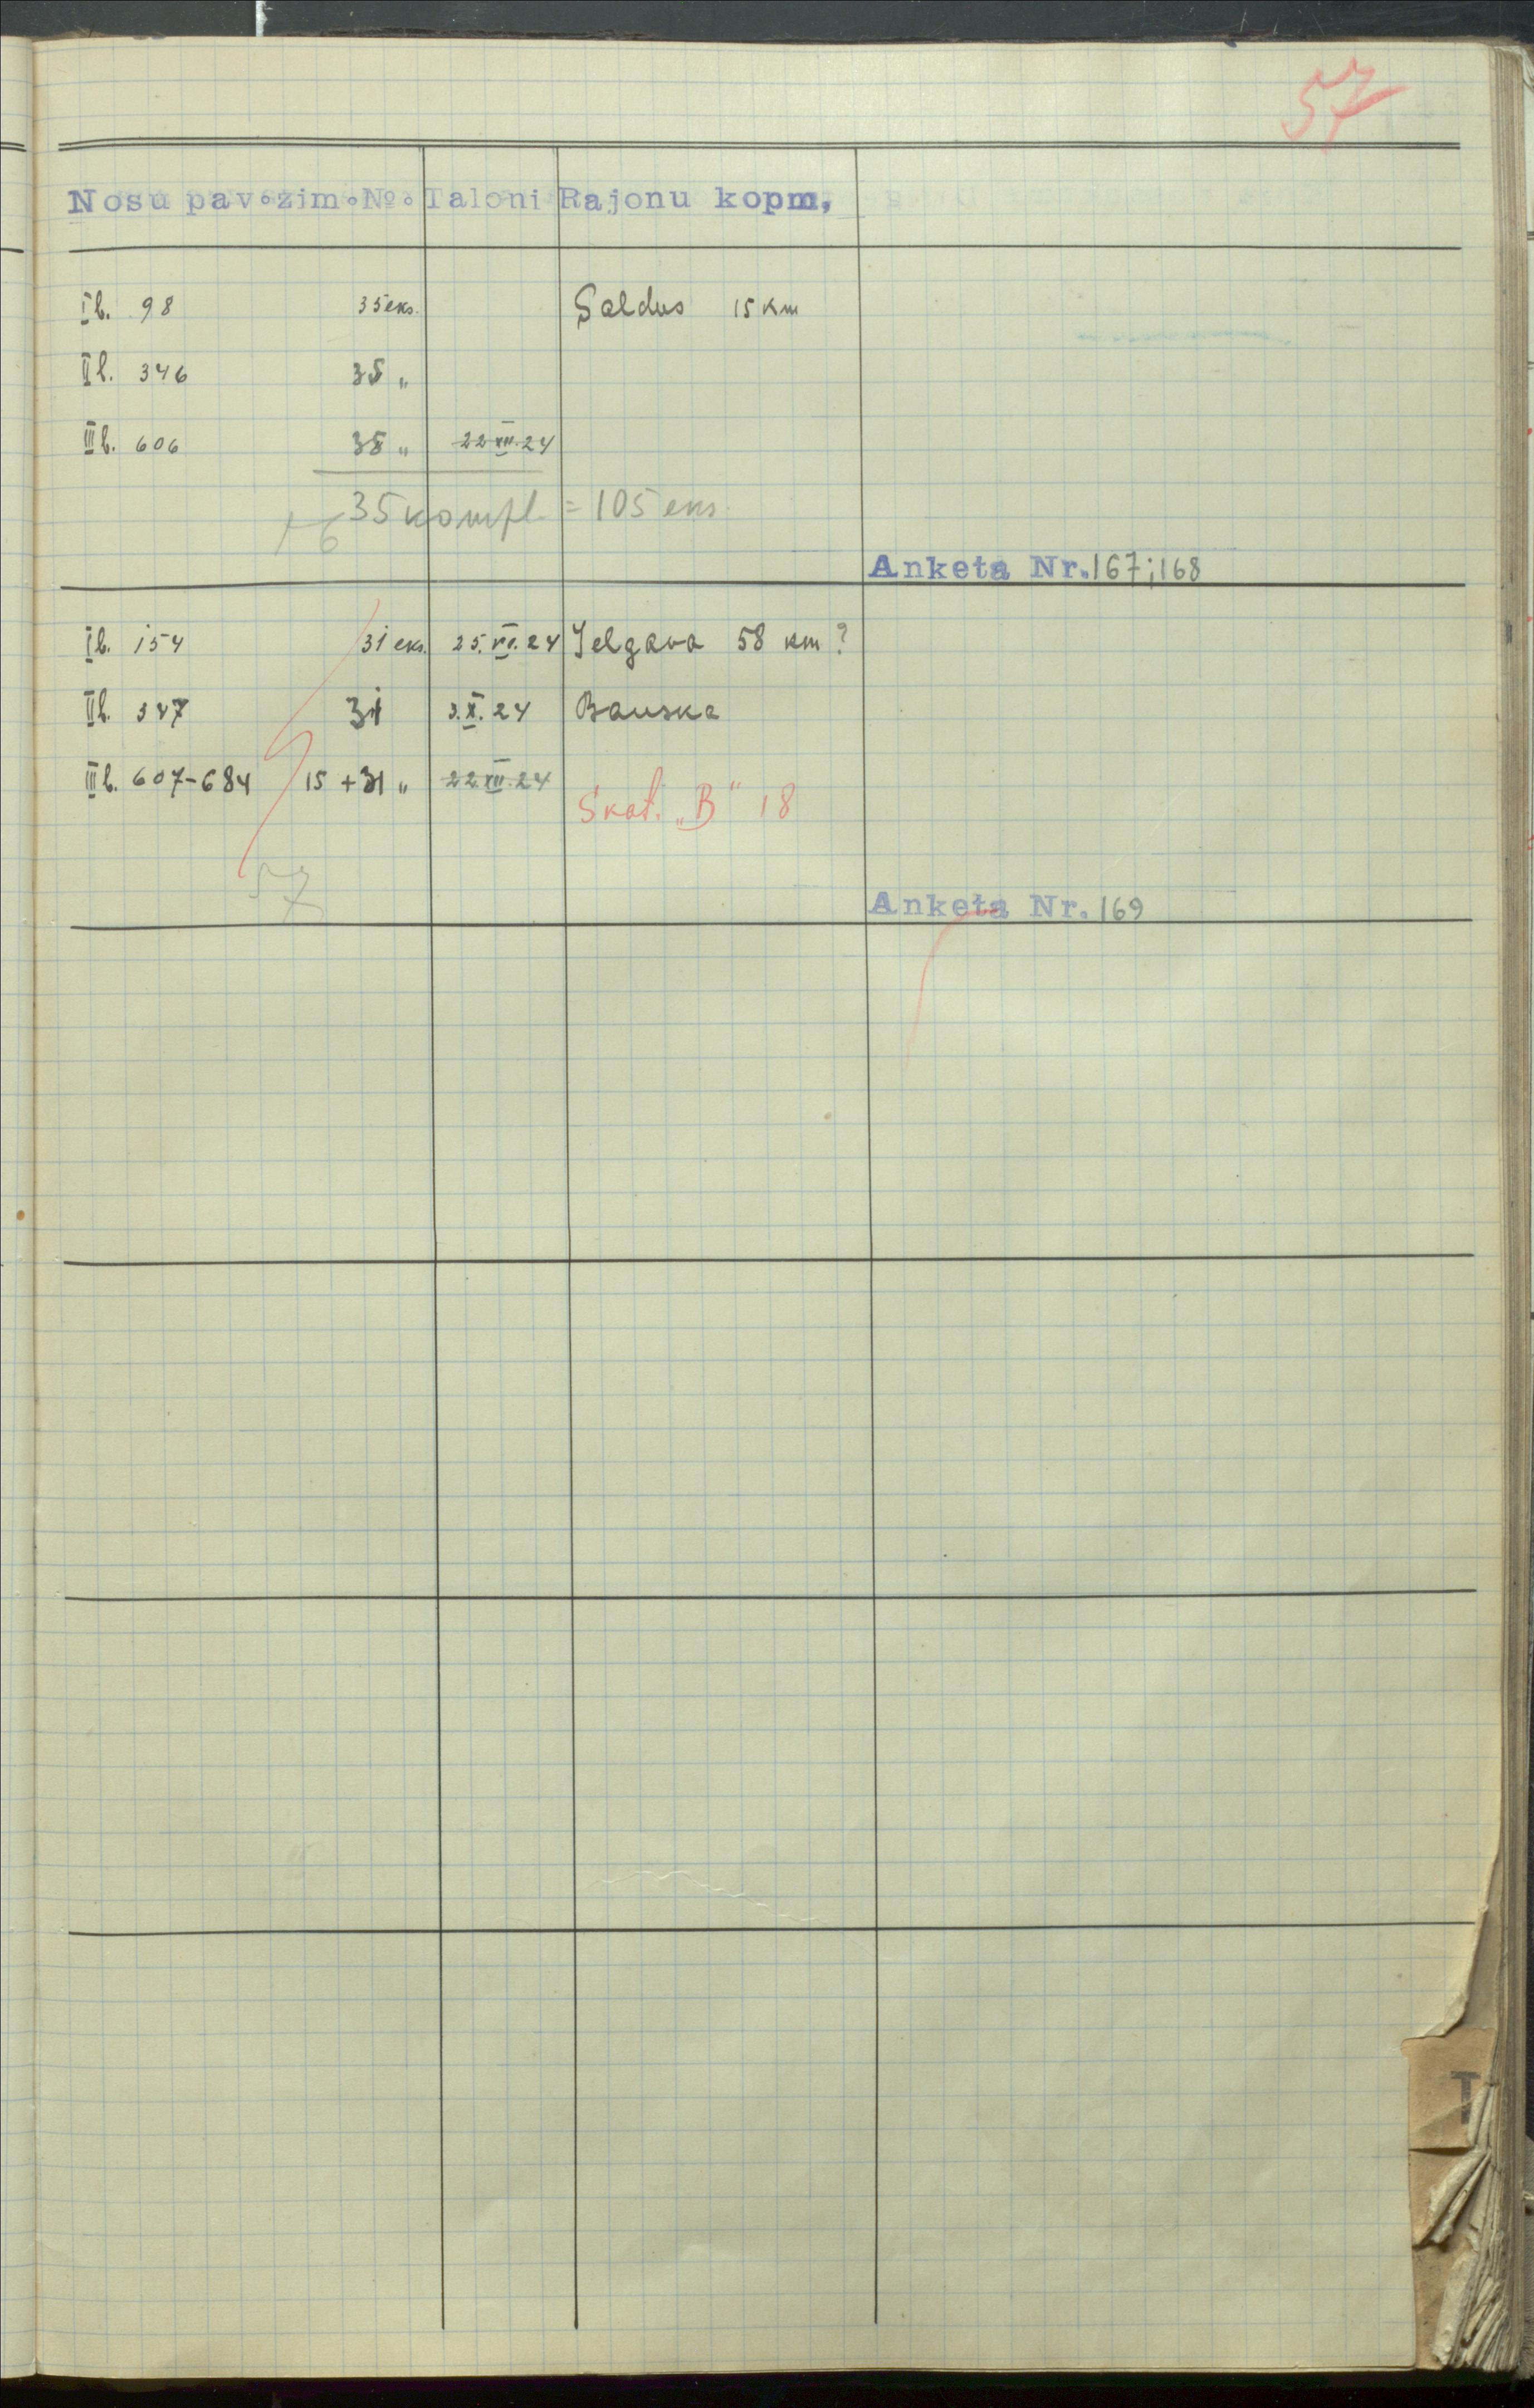 57
Nosu pav.zim.№. Taloni Rajonu kopm,
I b. 98 35 eks. Saldus 15 km
II b. 346 35 "
III b. 606 35 " 22 XII. 24
35 kompl. = 105 eks.
Anketa Nr. 167; 168
I b. 154 31 eks. 25. VI. 24 Jelgava 58 km ?
II b. 347 31 3. X. 24 Bauska
III b. 607-684 15 + 31 " 22. XII. 24
Skat. „B" 18
57
Anketa Nr. 169
T